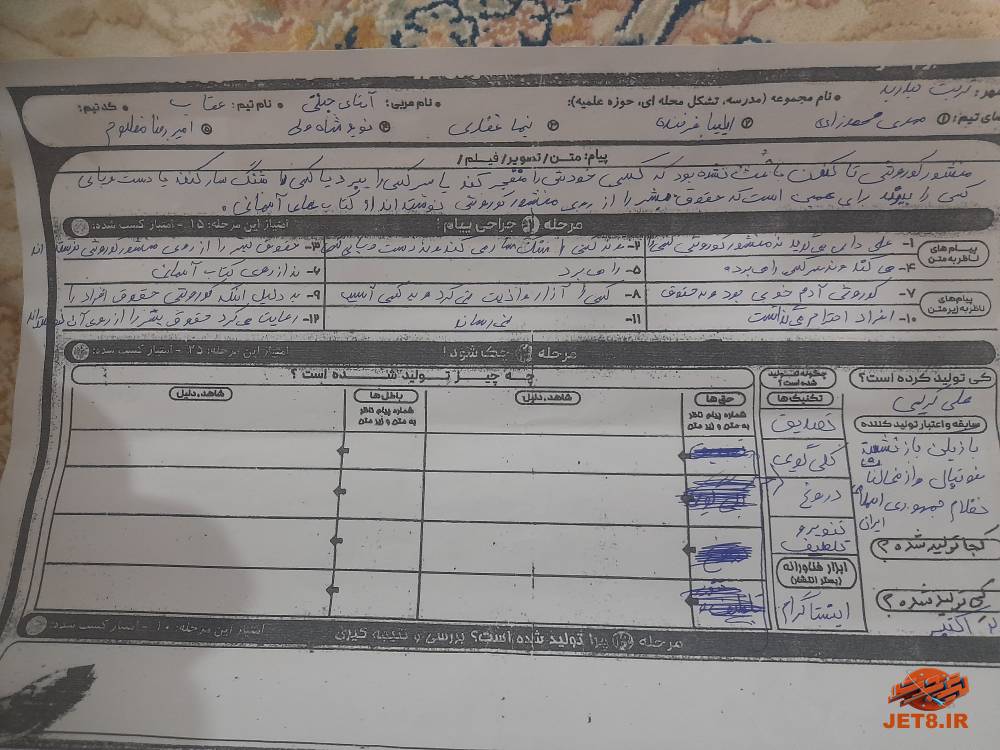 شهر: تربت حیدریه • نام مجموعه (مدرسه، تشکل محله ای، حوزه علمیه): • نام مربی: آقای • نام تیم: عقاب • کد تیم:
اعضای تیم: ① مهدی ② ایلیا ③ نیما غفاری ④ نوید شاه ولی ⑤ امیررضا مظلوم
پیام: متن/ تصویر/ فیلم/
منشور کوروش تا کنون باعث نشده بود که کسی خودش را منفجر کند یا سر کسی را ببرد یا کسی را سنگ سار کند یا دست و پای
کسی را ببرد برای همین است که حقوق بشر را از روی منشور کوروش نوشته اند نه از کتاب های آسمانی.
مرحله ۱ جراحی پیام: امتیاز این مرحله: ۱۵ - امتیاز کسب شده:
پیام های ناظر به متن
۱- علی دایی می گوید نه منشور کوروش کسی را
۲- نه کسی را سنگ سار می کند و نه دست و پای کسی
۳- حقوق بشر را از روی منشور کوروش نوشته اند
۴- می کشد و نه سر کسی را می برد
۵- را می برد
۶- نه از روی کتاب آسمان
پیام های ناظر به زیر متن
۷- کوروش آدم خوبی بود و به حقوق
۸- کسی را آزار و اذیت نمی کرد و به کسی آسیب
۹- به دلیل اینکه کوروش حقوق افراد را
۱۰- افراد احترام می گذاشت
۱۱- نمی رساند
۱۲- رعایت می کرد حقوق بشر را از روی آن
مرحله ۲ چک شود! امتیاز این مرحله: ۲۵ - امتیاز کسب شده:
کی تولید کرده است؟
علی کریمی
سابقه و اعتبار تولید کننده
بازیکن بازنشسته
فوتبال و از مخالفان
نظام جمهوری اسلامی
ایران
کجا تولید شده؟
کی تولید شده؟
اکتبر
چگونه تولید شده است؟
تکنیک ها
تصدیق
کلی گویی
دروغ
تنویر و
تلطیف
ابزار فناورانه
(بستر انتشار)
اینستاگرام
چه چیز تولید شده است؟
حق ها
شماره پیام ناظر
به متن و زیر متن
شاهد، دلیل
باطل ها
شماره پیام ناظر
به متن و زیر متن
شاهد، دلیل
مرحله ۳ چرا تولید شده است؟ بررسی و نتیجه گیری امتیاز این مرحله: ۱۰ - امتیاز کسب شده:
JET8.IR